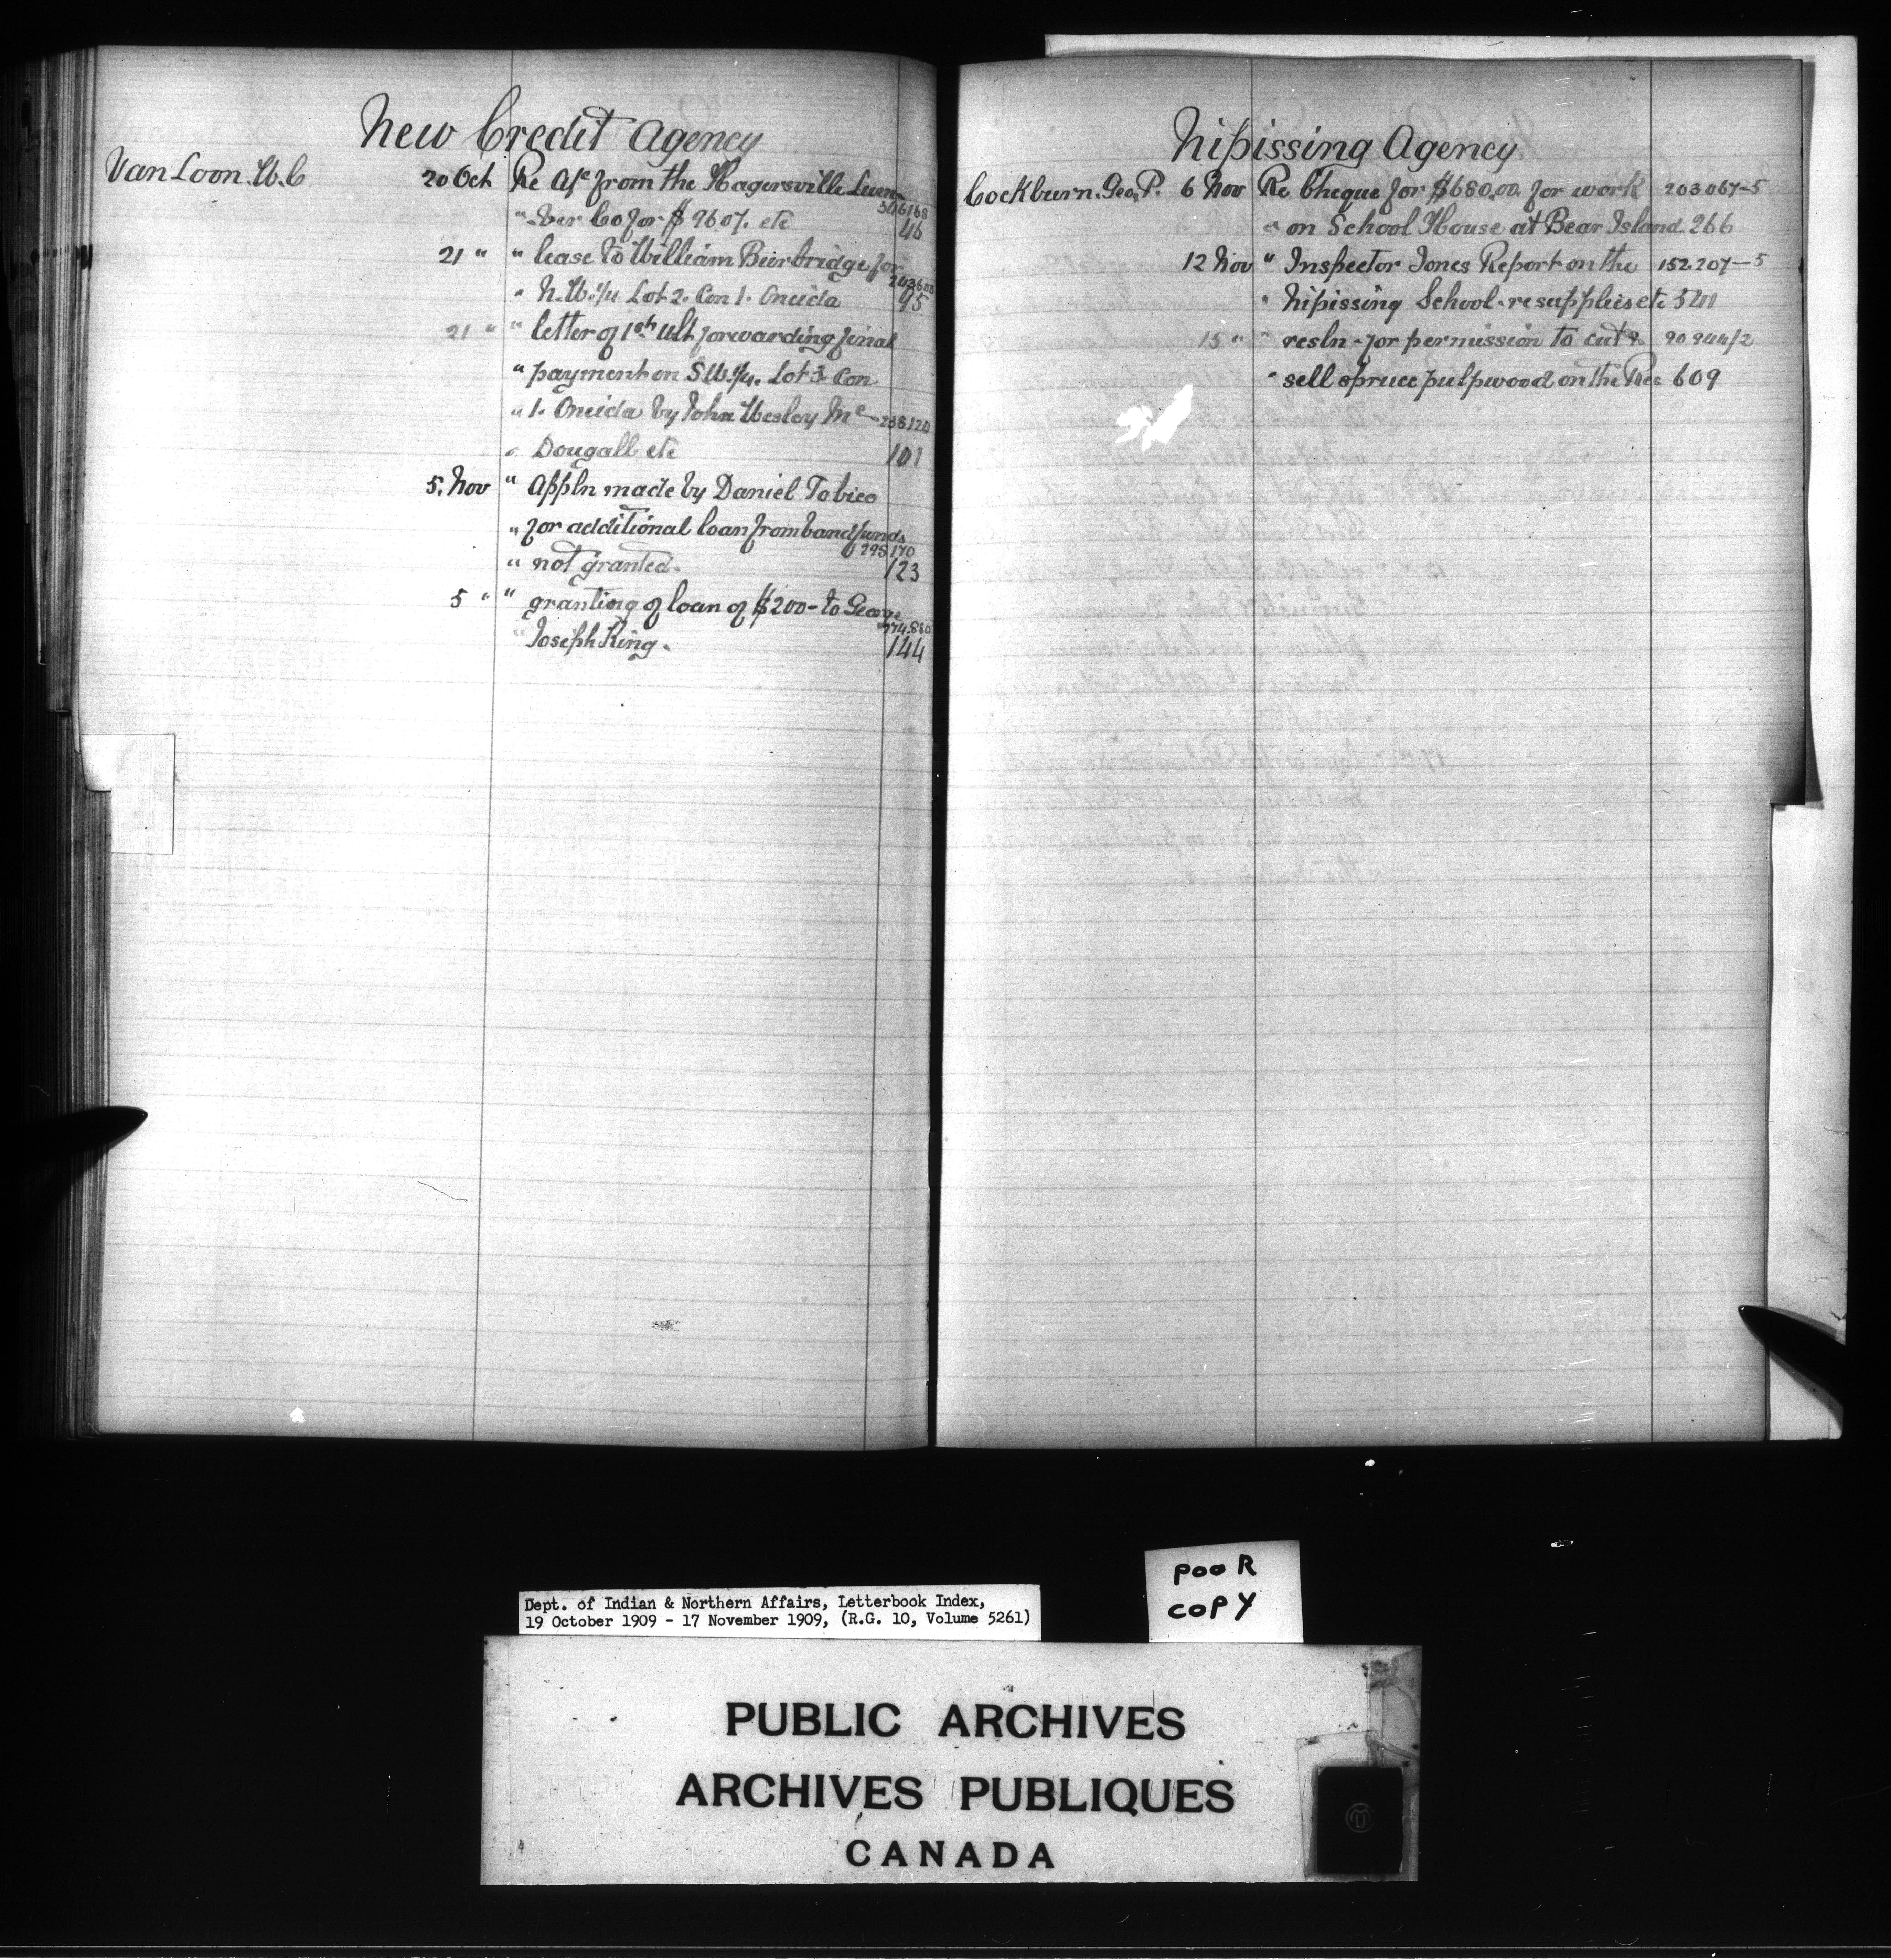 New Credit Agency
Van Loon. W. C 20 Oct Re a/c from the Hagersville Lum-
306168
" -ber Co for $ 96.07. etc 46
21 " " lease to William Bierbridge for
243600
" N.W.¼ Lot 2. Con 1. Oneida 95
21 " " letter of 1st ult forwarding final
" payment on S W.¼. Lot 3 Con
" 1. Oneida by John Wesley Mc- 238120
" Dougall etc 101
5. Nov " Appln made by Daniel Tobico
" for additional loan from band funds
295170
" not granted. 123
5 " " granting of loan of $200- to George
274.880
" Joseph King. 144
Nipissing Agency
Cockburn. Geo. P. 6 Nov Re Cheque for $680.00. for work 203067-5
" on School House at Bear Island 266
12 Nov " Inspector Jones Report on the 152.207-5
" Nipissing School. re supplies etc 541
15 " " resln - for permission to cut & 90944/2
" sell spruce pulpwood on the Res 609
POOR
COPY
Dept. of Indian & Northern Affairs, Letterbook Index,
19 October 1909 - 17 November 1909, (R.G. 10, Volume 5261)
PUBLIC ARCHIVES
ARCHIVES PUBLIQUES
CANADA